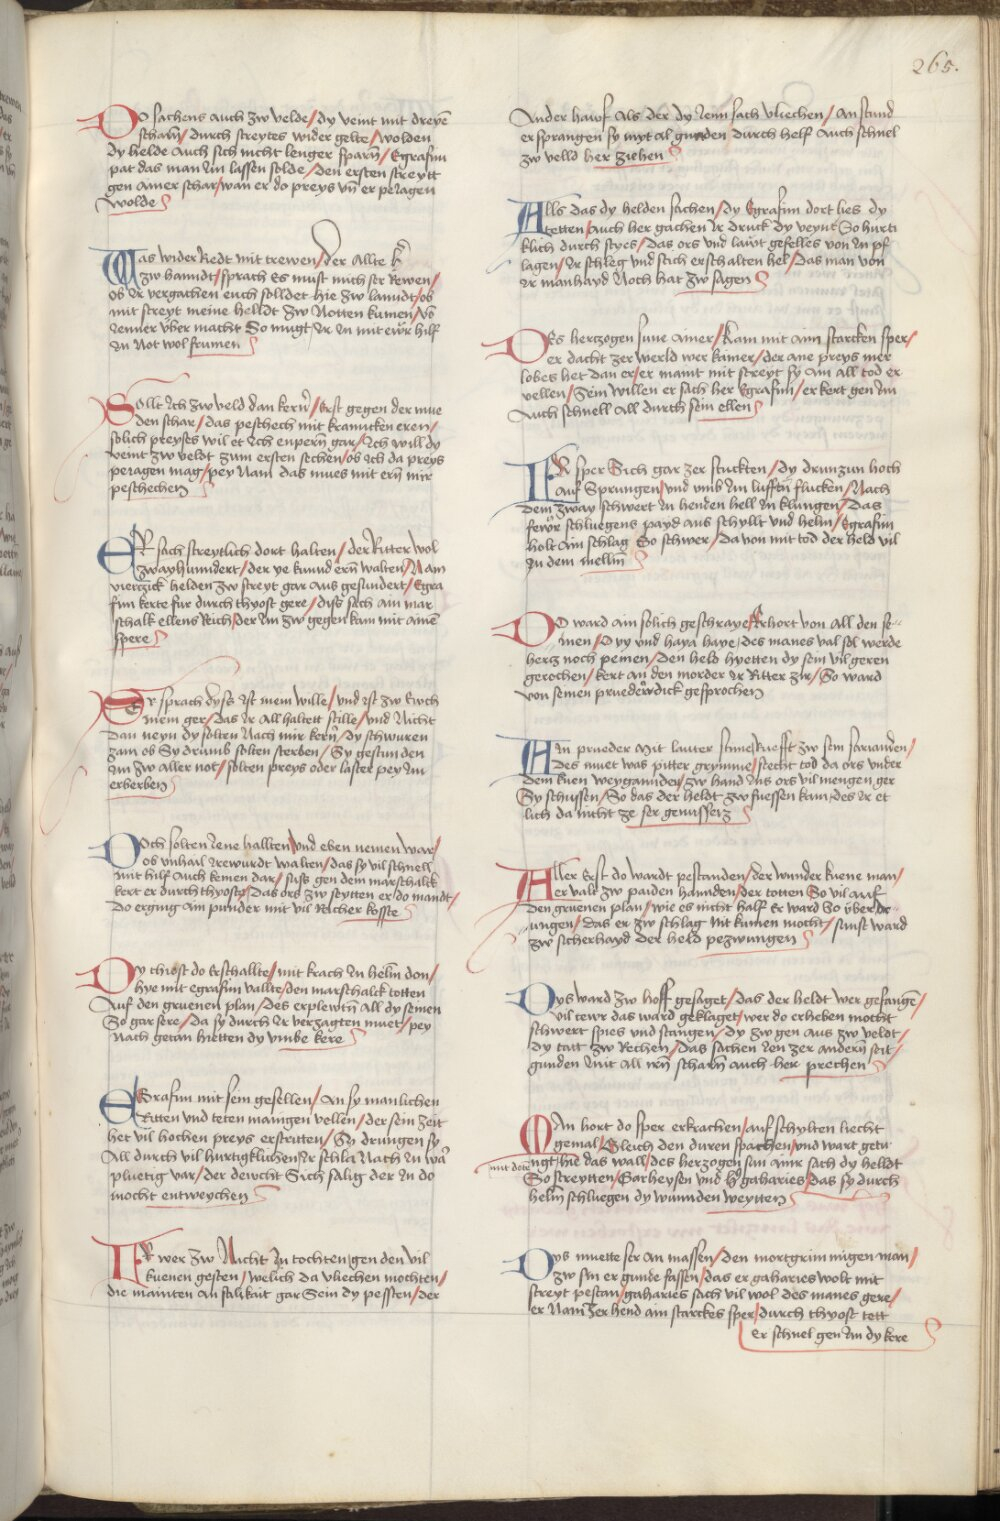 265.
Do sachens auch zw velde / dy veint mit dreyē
scharn̄ / durch streytes wider gelte / wolden
dy helde auch sich nicht lenger sparn̄ / Egrafun
pat das man Im lassen solde / den ersten streytt
gen ainer schar / wan er do preys vn̄ er peiagen
wolde
Was wider Redt mit trewen / der Allte k
zw hanndt / sprach Es must mich ser Rewen /
ob Ir vergachen euch solldet hie zw lanndt / ob
mit streyt meine helldt zw Notten kumen / võ
Jenner vber macht So mugt Ir In mit ewr hilf
In Not wol frumen
Sollt Ich zw veld dan kern̄ / Erst gegen der mue
den schar / das peschech mit kranncken eren /
solich preyses wil et Ich enpern̄ gar / Ich will dy
veint zw veldt zum ersten sechen / ob Ich da preys
peiagen mag / pey Nam das mues mit ern̄ mir
peschechen
Er sach streytlich dort halten / der Ritter wol
zwayhundert / der ye kunnd ern̄ walten / Nam
vierzick helden zw streyt gar aus gesundert / Egra
fun kerte fur durch thyost gere / diss sach ain mar
schalk ellens Reich / der Im zw gegen kam mit ainē
spere
Er sprach dyss Ist mein wille / und Ist zw Euch
mein ger / das Ir All haltett stille / und Nicht
dan neyn dy solten Nach mir kern̄ / dy schwuren
zam ob Sy drumb solten sterben / Sy gestunden
Im zw aller not / solten preys oder laster pey Im
erberben
Doch solten Jene hallten / vnd eben nemen war /
ob vnhail Irewurdt walten / das sy vil schnell
mit hilf Auch kemen dar / suss gen dem marschalck
kert er durch thyoste / Das ors zw seytten er do mandt /
do erging am punder mit vil Richer kosste
Dy thiost do Erschallte / mit krach In helm don /
hye mit egrafun vallte / den marschalck totten
Auf den gruenen plan / des erplewtn̄ All dy seinen
So gar sere / da sy durch Ir verzagten muet / pey
Nach getan hietten dy vmbe kere
Egrafun mit sein gesellen / An sy manlichen
Ritten vnd teten mainigen vellen / der sein zeit
het vil hochen preys erstritten / So drungen sy
All durch vil hurtigklichen / Er schlei Nach In wa
pluetig var / der deucht Sich salig der In do
mocht entweychen
Er wer zw Nicht In tochten / gen den vil
kuenen gesten / welich da vliechen mochten /
die mainten an salikait gar Sein dy pessten / der
Ander hauf Als der dy Jenn sach vliechen / An stund
er sprangen sy myt al gunden durch helf Auch schnel
zw velld her ziehen
Alls das dy helden sachen / dy Egrafun dort lies dy
tetten / auch her gachen Ir druck dy veynt So hurti
klich durch styes / Das ors vnd lawt gefelles von In pf
lagen / Ir schleg vnd stich erschalten hel / das man von
Ir manhayd Noch hat zw sagen
Des herzogen sune ainer / kam mit aim starcken sper /
er dacht zer werld wer kainer / der ane preys mer
lobes het dan er / er maint mit streyt sy Im all tod er
vellen / Sein willen er sach her Egrafun / er kert gen Im
Auch schnell All durch sein ellen
Ir sper Sich gar zer stuckten / dy drunzun hoch
auf Sprungen / vnd vmb Im lufften flucken / Nach
dem zway schwert In henden hell In klungen / Das
fewr schluegens payd aus schyllt vnd helm / Egrafun
holt ain schlag So schwer / da von mit tod der held vil
In dem mellm̄
Do ward ain solich geschraye / Erhort von All den se
inen / Owy vnd haya haye / des manes val sol werde
herz noch peinen / Den held hyetten dy sein vil geren
gerochen / kert an den morder Ir Ritter zir / So ward
von seinen prueder dick gesprochen
Ain prueder Mit lauter stime / Ruefft zw sein sarianden /
Des muet was pitter grymme / stecht tod da ors vnder
dem kuen weyganndn̄ / zw hand Ins ors vil mengen ger
Sy schussen / So das der heldt zw fuessen kum / des Ir et
lich da nicht ze ser genussen
Aller Erst do wardt pestanden / der wunder kuene man /
er valt zw paiden hannden / der totten So vil auf
den gruenen plan / wie es nicht half Er ward So vber dr
ungen / das er zw schlag Nit kumen mocht / sunst ward
zw sicherhayd der held pezwungen
Dys ward zw hoff gesaget / das der heldt wer gefangē /
vil tewr das ward geklaget / wer do erheben mocht
schwert spies vnd stangen / dy zw gen aus zw veldt /
dy tatt zw Rechen / Das sachen Jen zer andern̄ seit /
gunden Mit All irn̄ scharn̄ auch her prechen
Man hort do sper erkrachen / auf schylten liecht
gemal / Gleich den duren spachen / vnd wart getu
mit done
ngt hie das wall / des herzogen sun ainr sach dy helldt
So streytten / Garheysen vnd h gaharies / das sy durch
helm̄ schluegen dy wunnden weytten
Dys muette ser An massen / den mortgrimmigen man /
zw sin er gunde fassen / das er gaharies wolt mit
streyt pestan / gaharies sach vil wol des manes gere /
er Nam zer hend ain starckes sper / durch thyost tett
er schnel gen Im dy kere